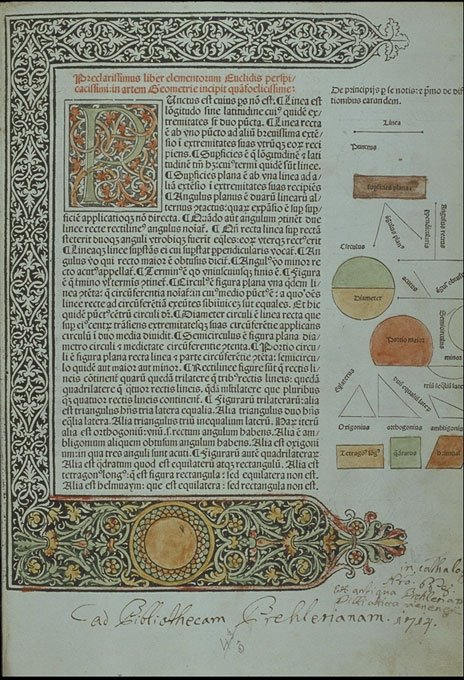 Preclarissimus liber elementorum Euclidis perspi-
cacissimi: in artem Geometrie incipit quãfoelicissime:
Punctus est cuius ps nõ est. Linea est
lõgitudo sine latitudine cuiꝰ quidẽ ex-
tremitates sũt duo pũcta. Linea recta
ẽ ab vno pũcto ad aliũ breuissima extẽ-
sio ĩ extremitates suas vtrũqꝫ eoꝝ reci
piens. Supficies ẽ q̃ lõgitudinẽ ⁊ lati
tudinẽ tm̃ hꝫ: cuiꝰ termi quidẽ sũt linee.
Supficies plana ẽ ab vna linea ad a-
liã extẽsio ĩ extremitates suas recipiẽs
Angulus planus ẽ duarũ linearũ al-
ternus ↄtactus: quaꝝ expãsio ẽ sup sup-
ficiẽ applicatioqꝫ nõ directa. Quãdo aũt angulum ↄtinent due
linee recte rectilineꝰ angulus noiaꞇ̃. Qñ recta linea sup rectã
steterit duoqꝫ anguli vtrobiqꝫ fuerit eq̃les: eoꝝ vterqꝫ rectꝰ erit
Lineaqꝫ linee supstãs ei cui supstat ppendicularis vocaꞇ̃. An
gulus vo qui recto maior ẽ obtusus diciꞇ̃. Angulꝰ vo minor re
cto acutꝰ appellaꞇ̃. Terminꝰ ẽ qd vniuscuiusqꝫ finis ẽ. Figura
ẽ q̃ tmino vl termis ↄtineꞇ̃. Circulꝰ ẽ figura plana vna qdem li-
nea ↄtẽta: q̃ circũferentia noiaꞇ̃: in cuiꝰ medio pũctꝰ ẽ: a quo oẽs
linee recte ad circũferẽtiã exeũtes sibiinuicẽ sũt equales. Et hic
quidẽ pũctꝰ cẽtrũ circuli dꝫ. Diameter circuli ẽ linea recta que
sup eiꝰ centꝝ trãsiens extremitatesqꝫ suas circũferẽtie applicans
circulũ ĩ duo media diuidit. Semicirculus ẽ figura plana dia-
metro circuli ⁊ medietate circũferentie ↄtenta. Portio circu-
li ẽ figura plana recta linea ⁊ parte circũferẽtie ↄtẽta: semicircu-
lo quidẽ aut maior aut minor. Rectilinee figure sũt q̃ rectis li-
neis cõtinent quarũ quedã trilatere q̃ tribꝰ rectis lineis: quedã
quadrilatere q̃ qtuor rectis lineis. qdã mltilatere que pluribus
qꝫ quatuor rectis lineis continent. Figuraꝝ trilateraꝝ: alia
est triangulus hñs tria latera equalia. Alia triangulus duo hñs
eq̃lia latera. Alia triangulus triũ inequalium laterũ. Haꝝ iterũ
alia est orthogoniũ: vnũ. s. rectum angulum habens. Alia ẽ am-
bligonium aliquem obtusum angulum habens. Alia est origoni
um: in qua tres anguli sunt acuti. Figuraꝝ autẽ quadrilateraꝝ
Alia est qdratum quod est equilateꝝ atqꝫ rectangulũ. Alia est
tetragonꝰ longꝰ: q̃ est figura rectangula: sed equilatera non est.
Alia est helmuaym: que est equilatera: sed rectangula non est.
De principijs p se notis: ⁊ pmo de dif
finitionibus earandem.
Linea
Punctus
supficies plana
Circulus
Diameter
Portio maior
Semicirculus
minor
Origonius
orthogonius
ambligonius
Tetragonꝰ lõgꝰ
qdratus
ad Bibliothecam Prehlerianam. 1714.